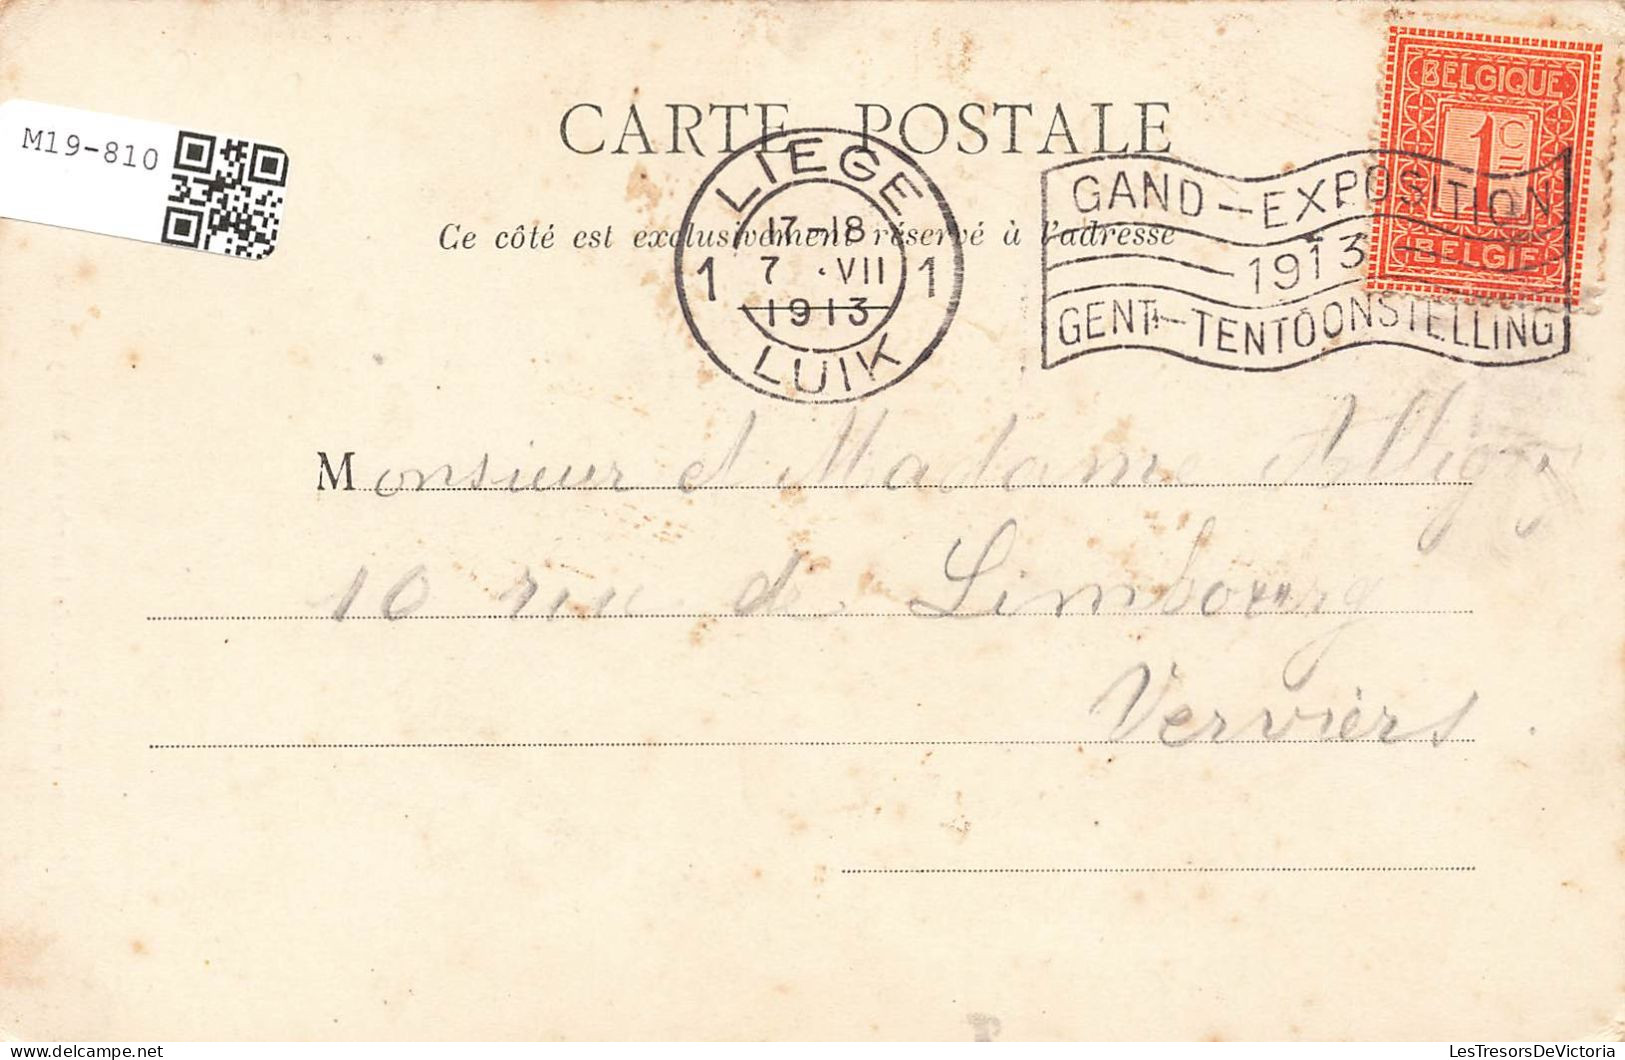 M19-810
CARTE POSTALE
Ce côté est exclusivement réservé à l'adresse
LIEGE
17-18
1 7 VII 1
1913
LUIK
GAND-EXPOSITION
1913
GENT-TENTOONSTELLING
BELGIQUE
1C
BELGIE
Monsieur et Madame
10 rue de Limbourg
Verviers
delcampe.net
LesTresorsDeVictoria